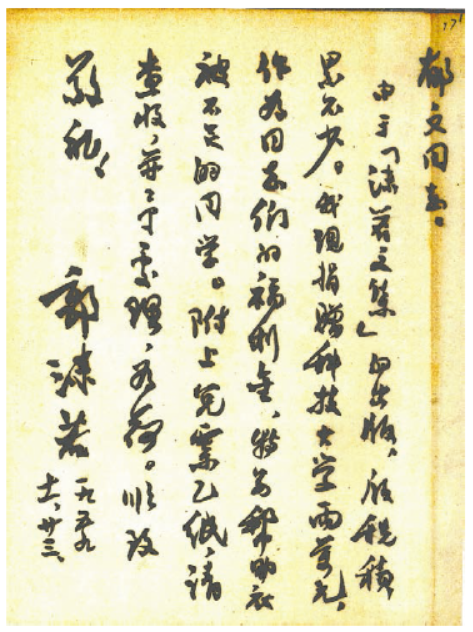 郁文同志。
由于「沫若文集」的出版，版税积
累不少。我现捐赠科技大学两万元，
作为同志们的福利金、特为帮助衣
被不足的同学。附上兑票乙纸，请
查收，并予处理，为荷。顺致
敬礼！
郭沫若 一九五九
十一、廿三、